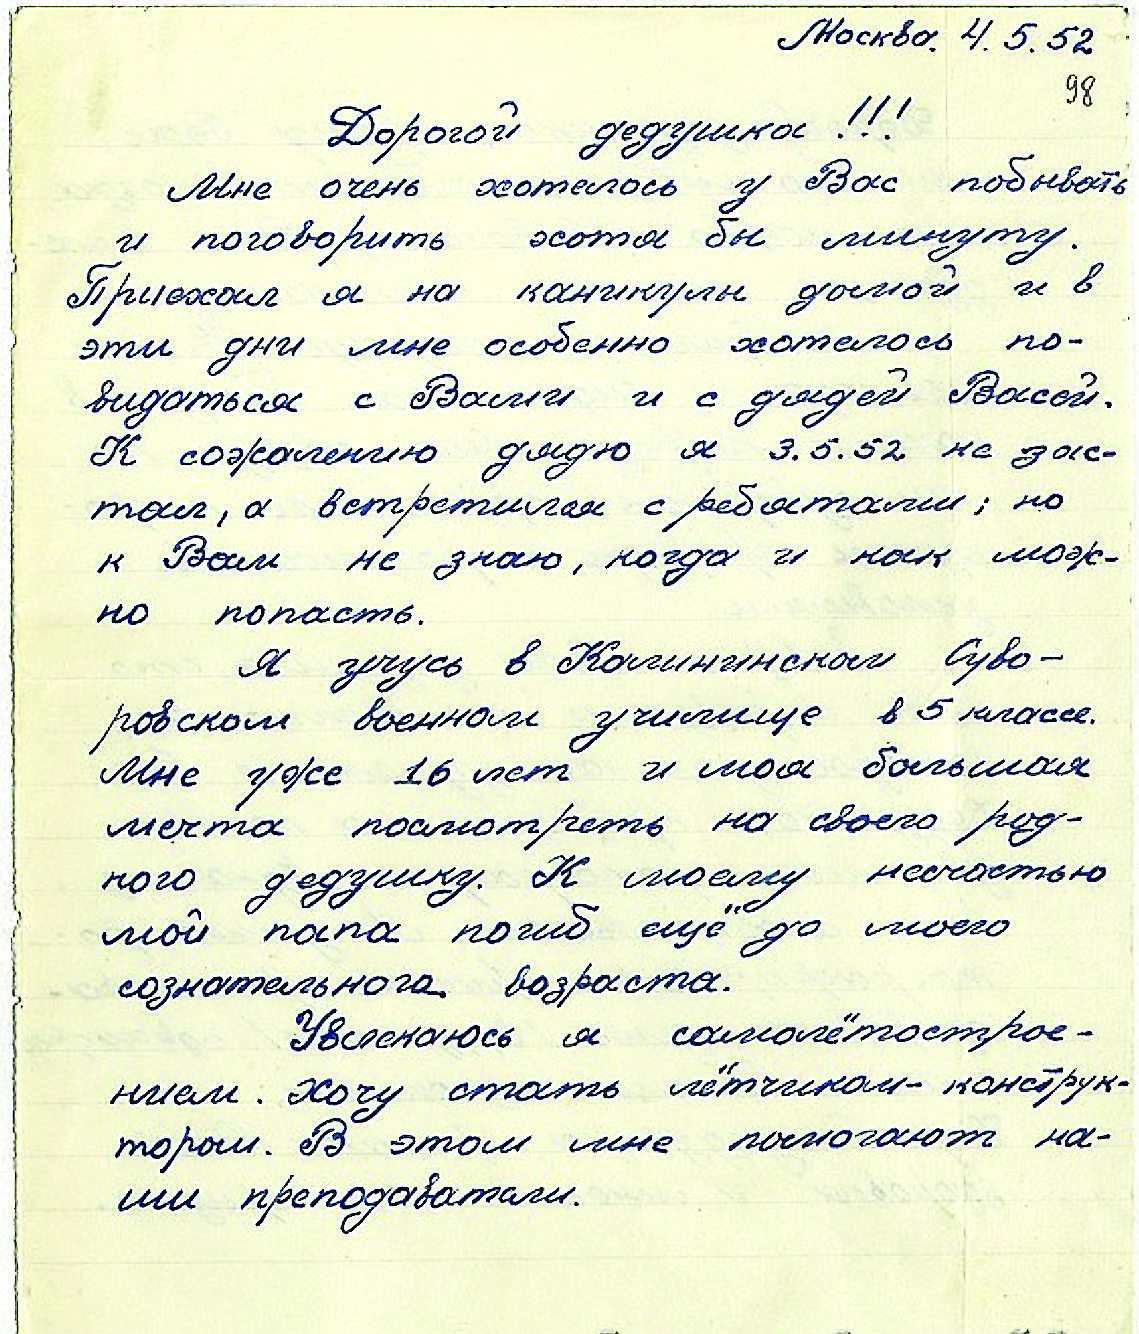 Москва. 4.5.52
98
Дорогой дедушка!!!
Мне очень хотелось у Вас побывать
и поговорить хотя бы минуту.
Приехал я на каникулы домой и в
эти дни мне особенно хотелось по-
видаться с Вами и с дядей Васей.
К сожалению дядю я 3.5.52 не зас-
тал, а встретился с ребятами; но
к Вам не знаю, когда и как мож-
но попасть.
Я учусь в Калининском Суво-
ровском военном училище в 5 классе.
Мне уже 16 лет и моя большая
мечта посмотреть на своего род-
ного дедушку. К моему несчастью
мой папа погиб ещё до моего
сознательного возраста.
Увлекаюсь я самолётострое-
нием. Хочу стать лётчиком-конструк-
тором. В этом мне помогают на-
ши преподаватели.